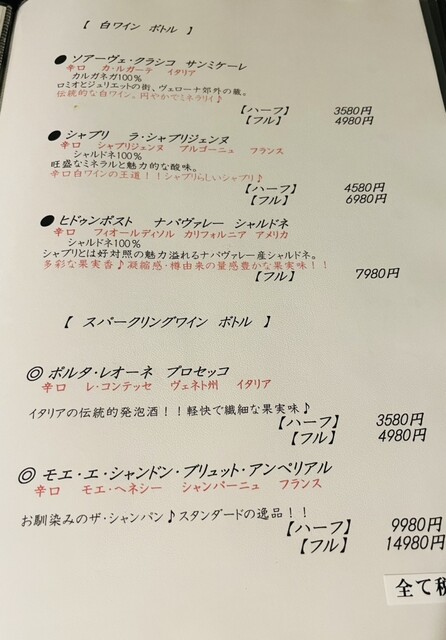 【 白ワイン ボトル 】
● ソアーヴェ・クラシコ サンミケーレ
辛口 カ・ルガーテ イタリア
カルガネガ100%
ロミオとジュリエットの街、ヴェローナ郊外の蔵。
伝統的な白ワイン。円やかでミネラリイ♪
【ハーフ】 3580円
【フル】 4980円
● シャブリ ラ・シャブリジェンヌ
辛口 シャブリジェンヌ ブルゴーニュ フランス
シャルドネ100%
旺盛なミネラルと魅力的な酸味。
辛口白ワインの王道！！シャブリらしいシャブリ♪
【ハーフ】 4580円
【フル】 6980円
● ヒドゥンポスト ナパヴァレー シャルドネ
辛口 フィオールディソル カリフォルニア アメリカ
シャルドネ100%
シャブリとは好対照の魅力溢れるナパヴァレー産シャルドネ。
多彩な果実香♪凝縮感・樽由来の量感豊かな果実味！！
【フル】 7980円
【 スパークリングワイン ボトル 】
◎ ポルタ・レオーネ プロセッコ
辛口 レ・コンテッセ ヴェネト州 イタリア
イタリアの伝統的発泡酒！！軽快で繊細な果実味♪
【ハーフ】 3580円
【フル】 4980円
◎ モエ・エ・シャンドン・ブリュット・アンペリアル
辛口 モエ・ヘネシー シャンパーニュ フランス
お馴染みのザ・シャンパン♪スタンダードの逸品！！
【ハーフ】 9980円
【フル】 14980円
全て税